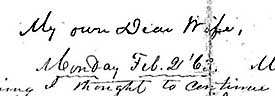 My own Dear Wife,
Monday Feb. 2' 63. M
ing I thought to continue